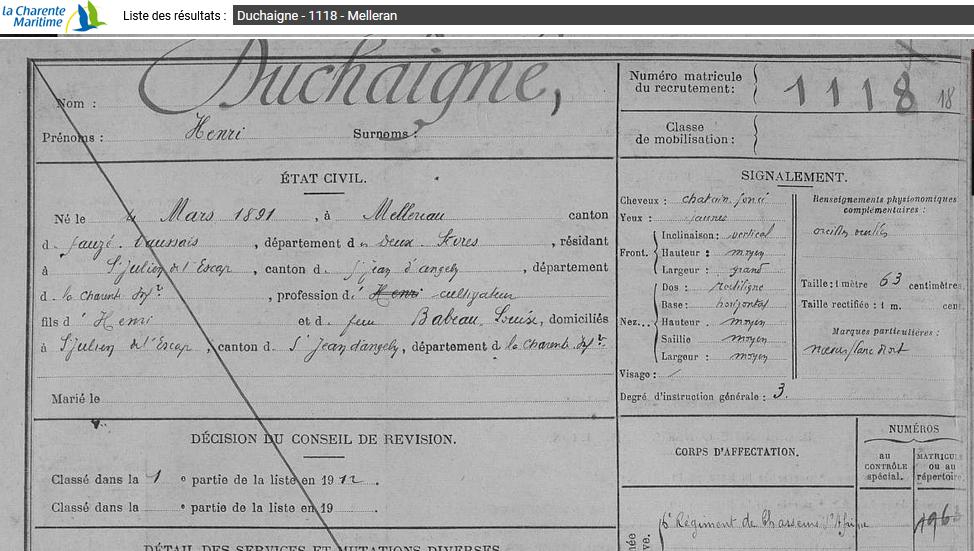 la Charente
Maritime
Liste des résultats : Duchaigne - 1118 - Melleran
Nom : Duchaigne,
Prénoms : Henri Surnoms :
Numéro matricule
du recrutement : 1118 18
Classe
de mobilisation :
ÉTAT CIVIL.
Né le 4 Mars 1891, à Melleran canton
d Sauzé-Vaussais, département des Deux-Sèvres, résidant
à St Julien de l'Escap, canton de St Jean d'angely, département
de la Charente Infre, profession de Henri cultivateur
fils d' Henri et de feue Babeau, Louise, domiciliés
à St Julien de l'Escap, canton de St Jean d'angely, département de la Charente Infre.
Marié le
DÉCISION DU CONSEIL DE REVISION.
Classé dans la 1e partie de la liste en 1912.
Classé dans la e partie de la liste en 19 .
DÉTAIL DES SERVICES ET MUTATIONS DIVERSES
SIGNALEMENT.
Cheveux : chatain foncé
Yeux : jaunes
Front. Inclinaison : vertical
Hauteur : moyen
Largeur : grand
Nez... Dos : rectiligne
Base : horizontal
Hauteur . moyen
Saillie moyen
Largeur : moyen
Visage :
Degré d'instruction générale : 3.
Renseignements physionomiques
complémentaires :
oreilles
Taille : 1 mètre 63 centimètres
Taille rectifiée : 1 m. cen
Marques particulières :
CORPS D'AFFECTATION.
NUMÉROS
au
CONTRÔLE
spécial.
MATRICUL
ou au
répertoire
6e Régiment de Chasseurs d'Afrique